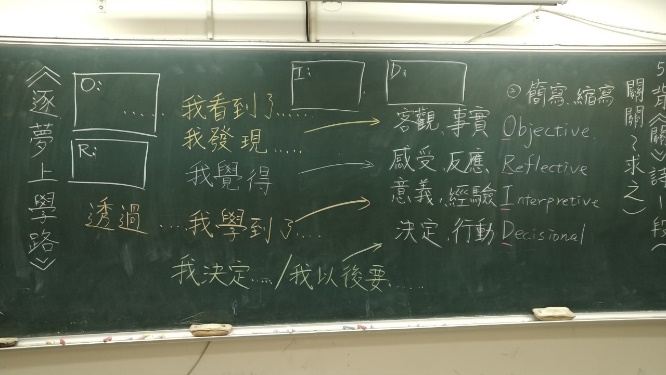 《逐夢上學路》
O:
R:
I:
D:
.....我看到了.....
我發現.....
我覺得
透過....我學到了....
我決定..../我以後要.....
客觀、事實 Objective
感受、反應、Reflective
意義、經驗 Interpretive
決定、行動 Decisional
簡寫、縮寫
關關~求之)